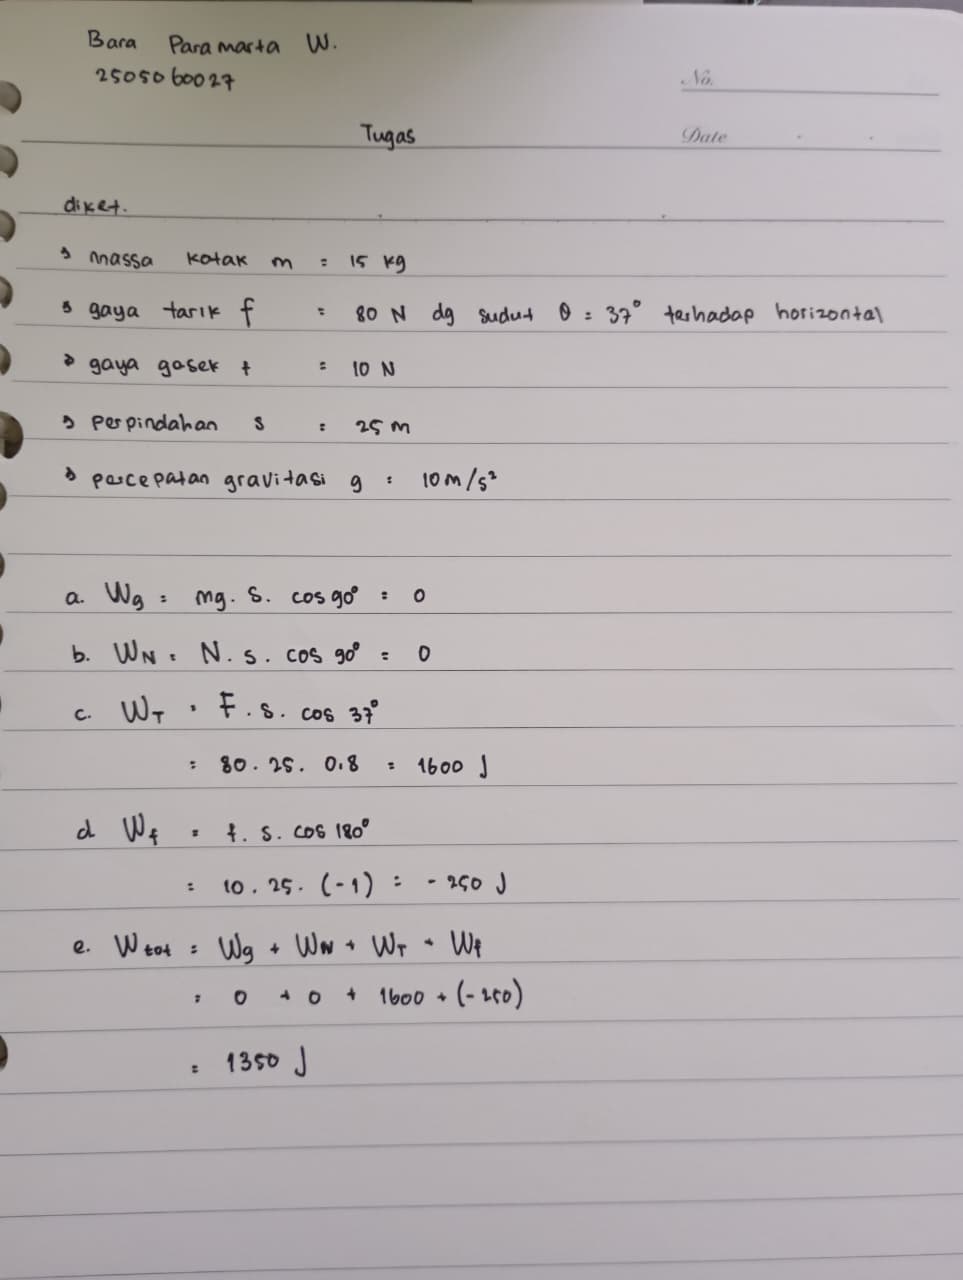 Bara Paramarta W.
2505060027
No.
Tugas
Date
diket.
massa kotak m = 15 kg
gaya tarik f = 80 N dg sudut θ = 37° terhadap horizontal
gaya gesek f = 10 N
perpindahan s = 25 m
percepatan gravitasi g = 10 m/s²
a. Wg = mg. s. cos 90° = 0
b. WN = N. s. cos 90° = 0
c. WT = F. s. cos 37°
= 80. 25. 0.8 = 1600 J
d Wf = f. s. cos 180°
= 10. 25. (-1) = - 250 J
e. Wtot = Wg + WN + WT + Wf
= 0 + 0 + 1600 + (-250)
= 1350 J